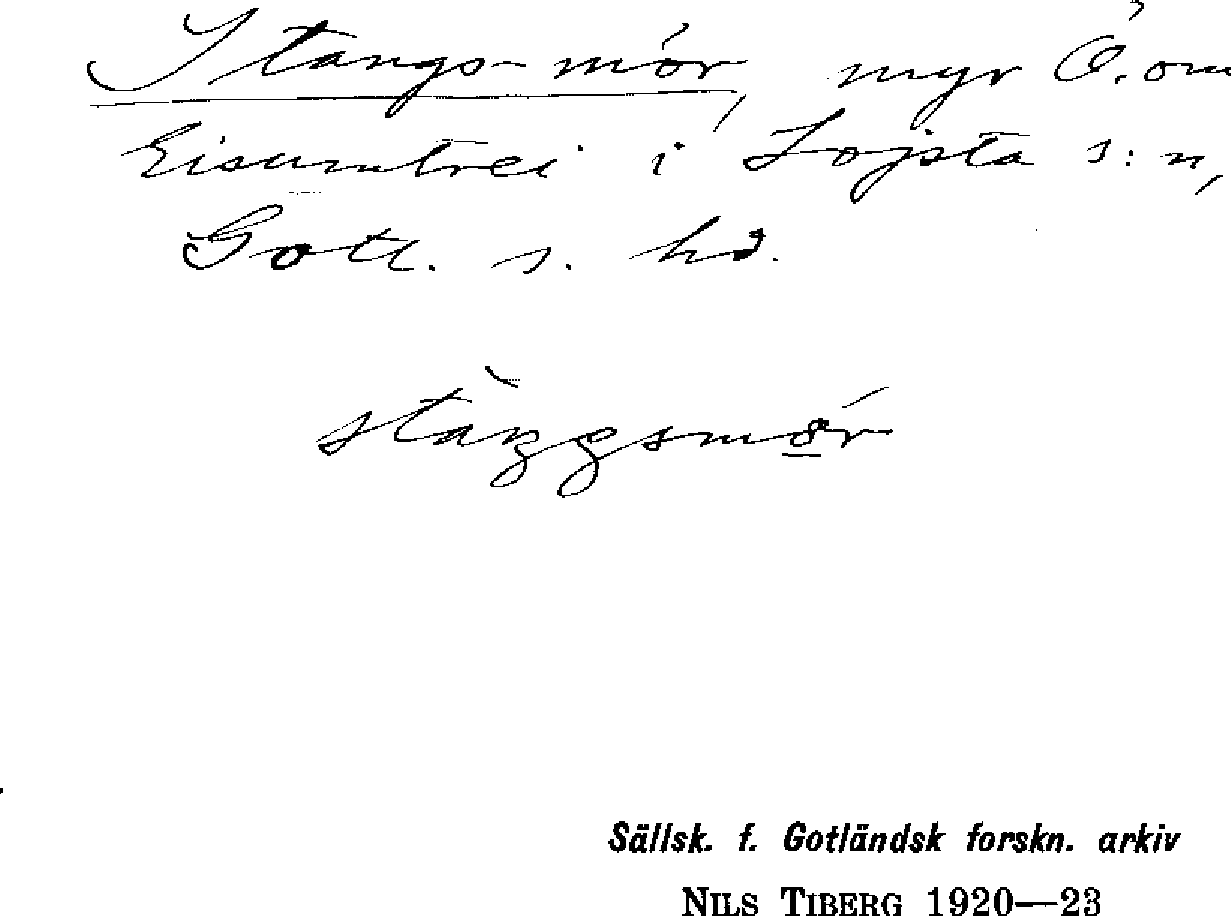 Stangs-mör, myr Ö. om
Eisumtrei i Lojsta s:n,
Gotl. s. hd.
stàŋgsmö́r
Sällsk. f. Gotländsk forskn. arkiv
NILS TIBERG 1920—23